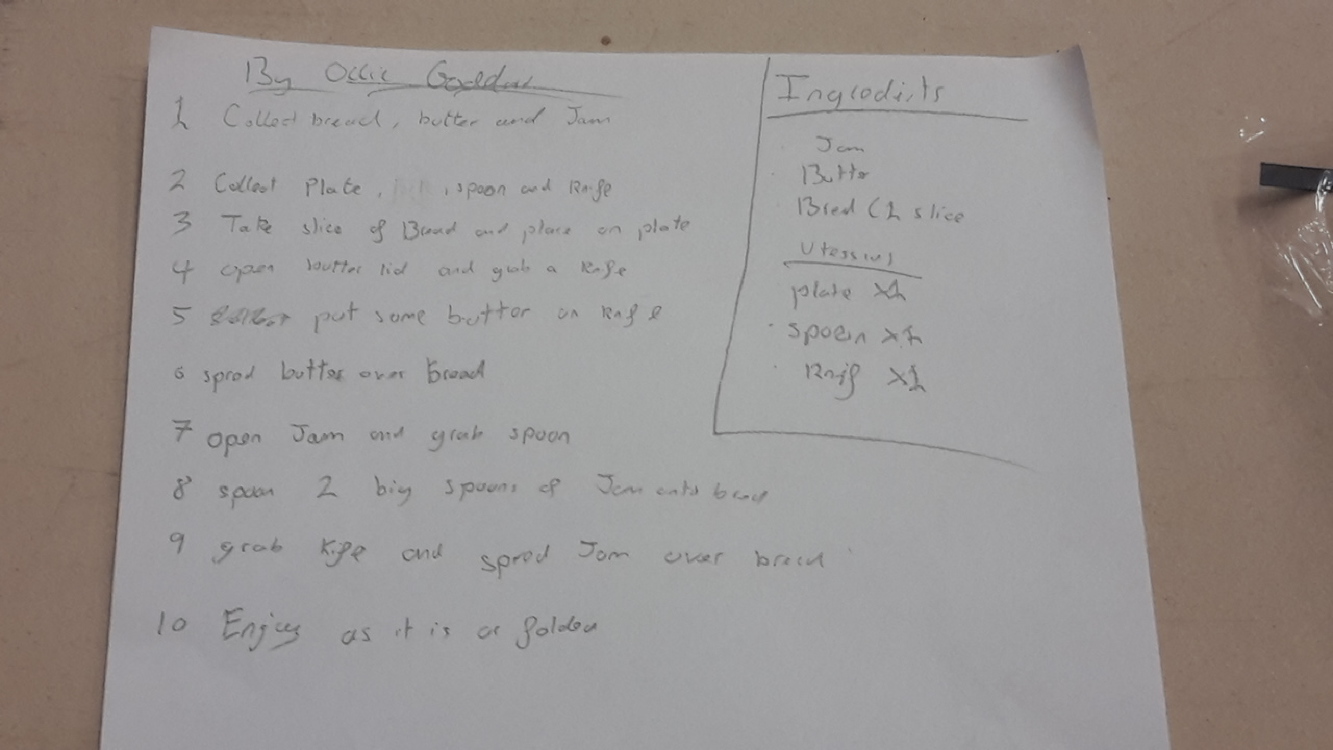 By Ollie
1 Collect bread, butter and Jam
2 Collect Plate, , spoon and Knife
3 Take slice of Bread and place on plate
4 open butter lid and grab a Knife
5 put some butter on Knife
6 spred butter over bread
7 open Jam and grab spoon
8 spoon 2 big spoons of Jam onto bread
9 grab Kife and spred Jam over bread
10 Enjoy as it is or folded
Ingredients
Jam
Butter
Bred (1 slice
Utessils
plate x1
spoon x1
Knif x1